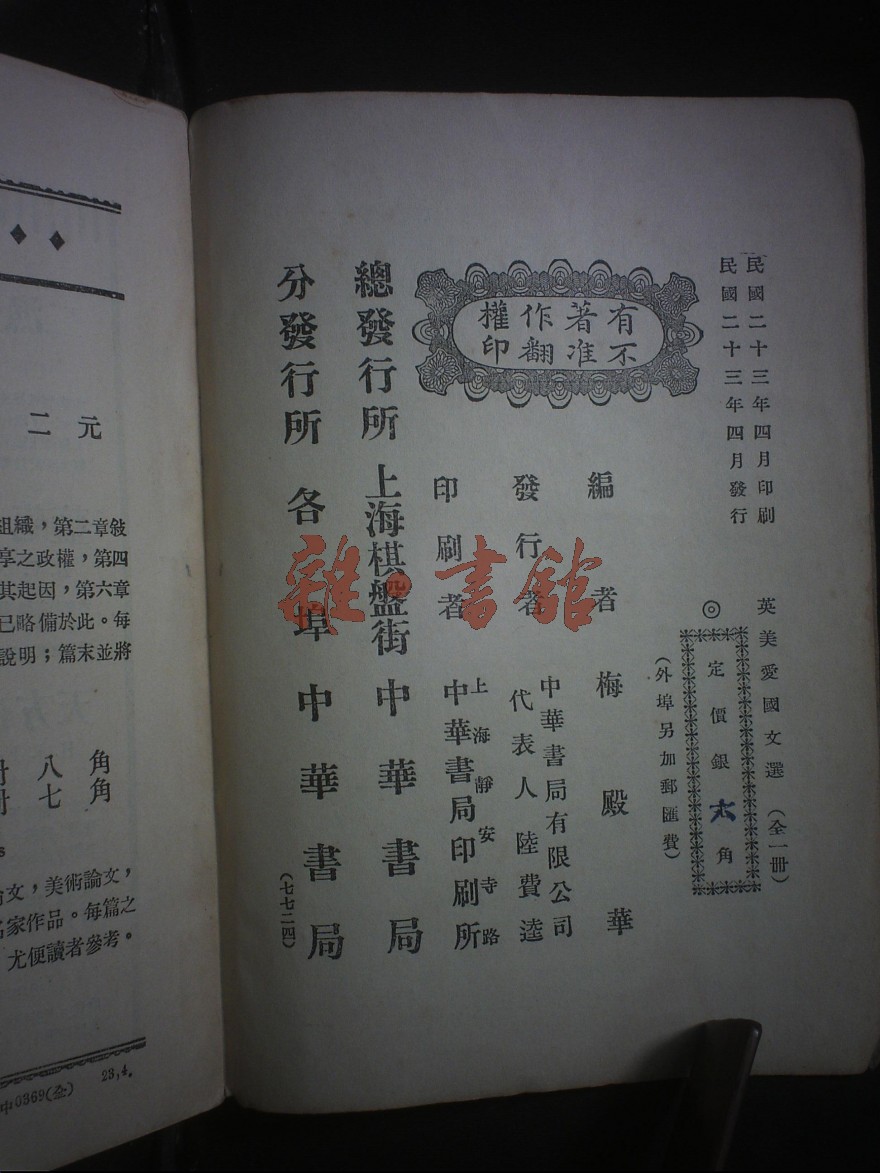 民國二十三年四月印刷
民國二十三年四月發行
英美愛國文選（全一冊）
◎定價銀六角
（外埠另加郵匯費）
有著作權
不准翻印
編者 梅殿華
發行者 中華書局有限公司
代表人 陸費逵
印刷者 上海靜安寺路
中華書局印刷所
總發行所 上海棋盤街 中華書局
分發行所 各埠 中華書局
（七七二四）
雜·書館
二元
組織，第二章敍
享之政權，第四
其起因，第六章
已略備於此。每
說明；篇末並將
八角
七角
s
文，美術論文，
家作品。每篇之
尤便讀者參考。
中0369(全) 23,4.